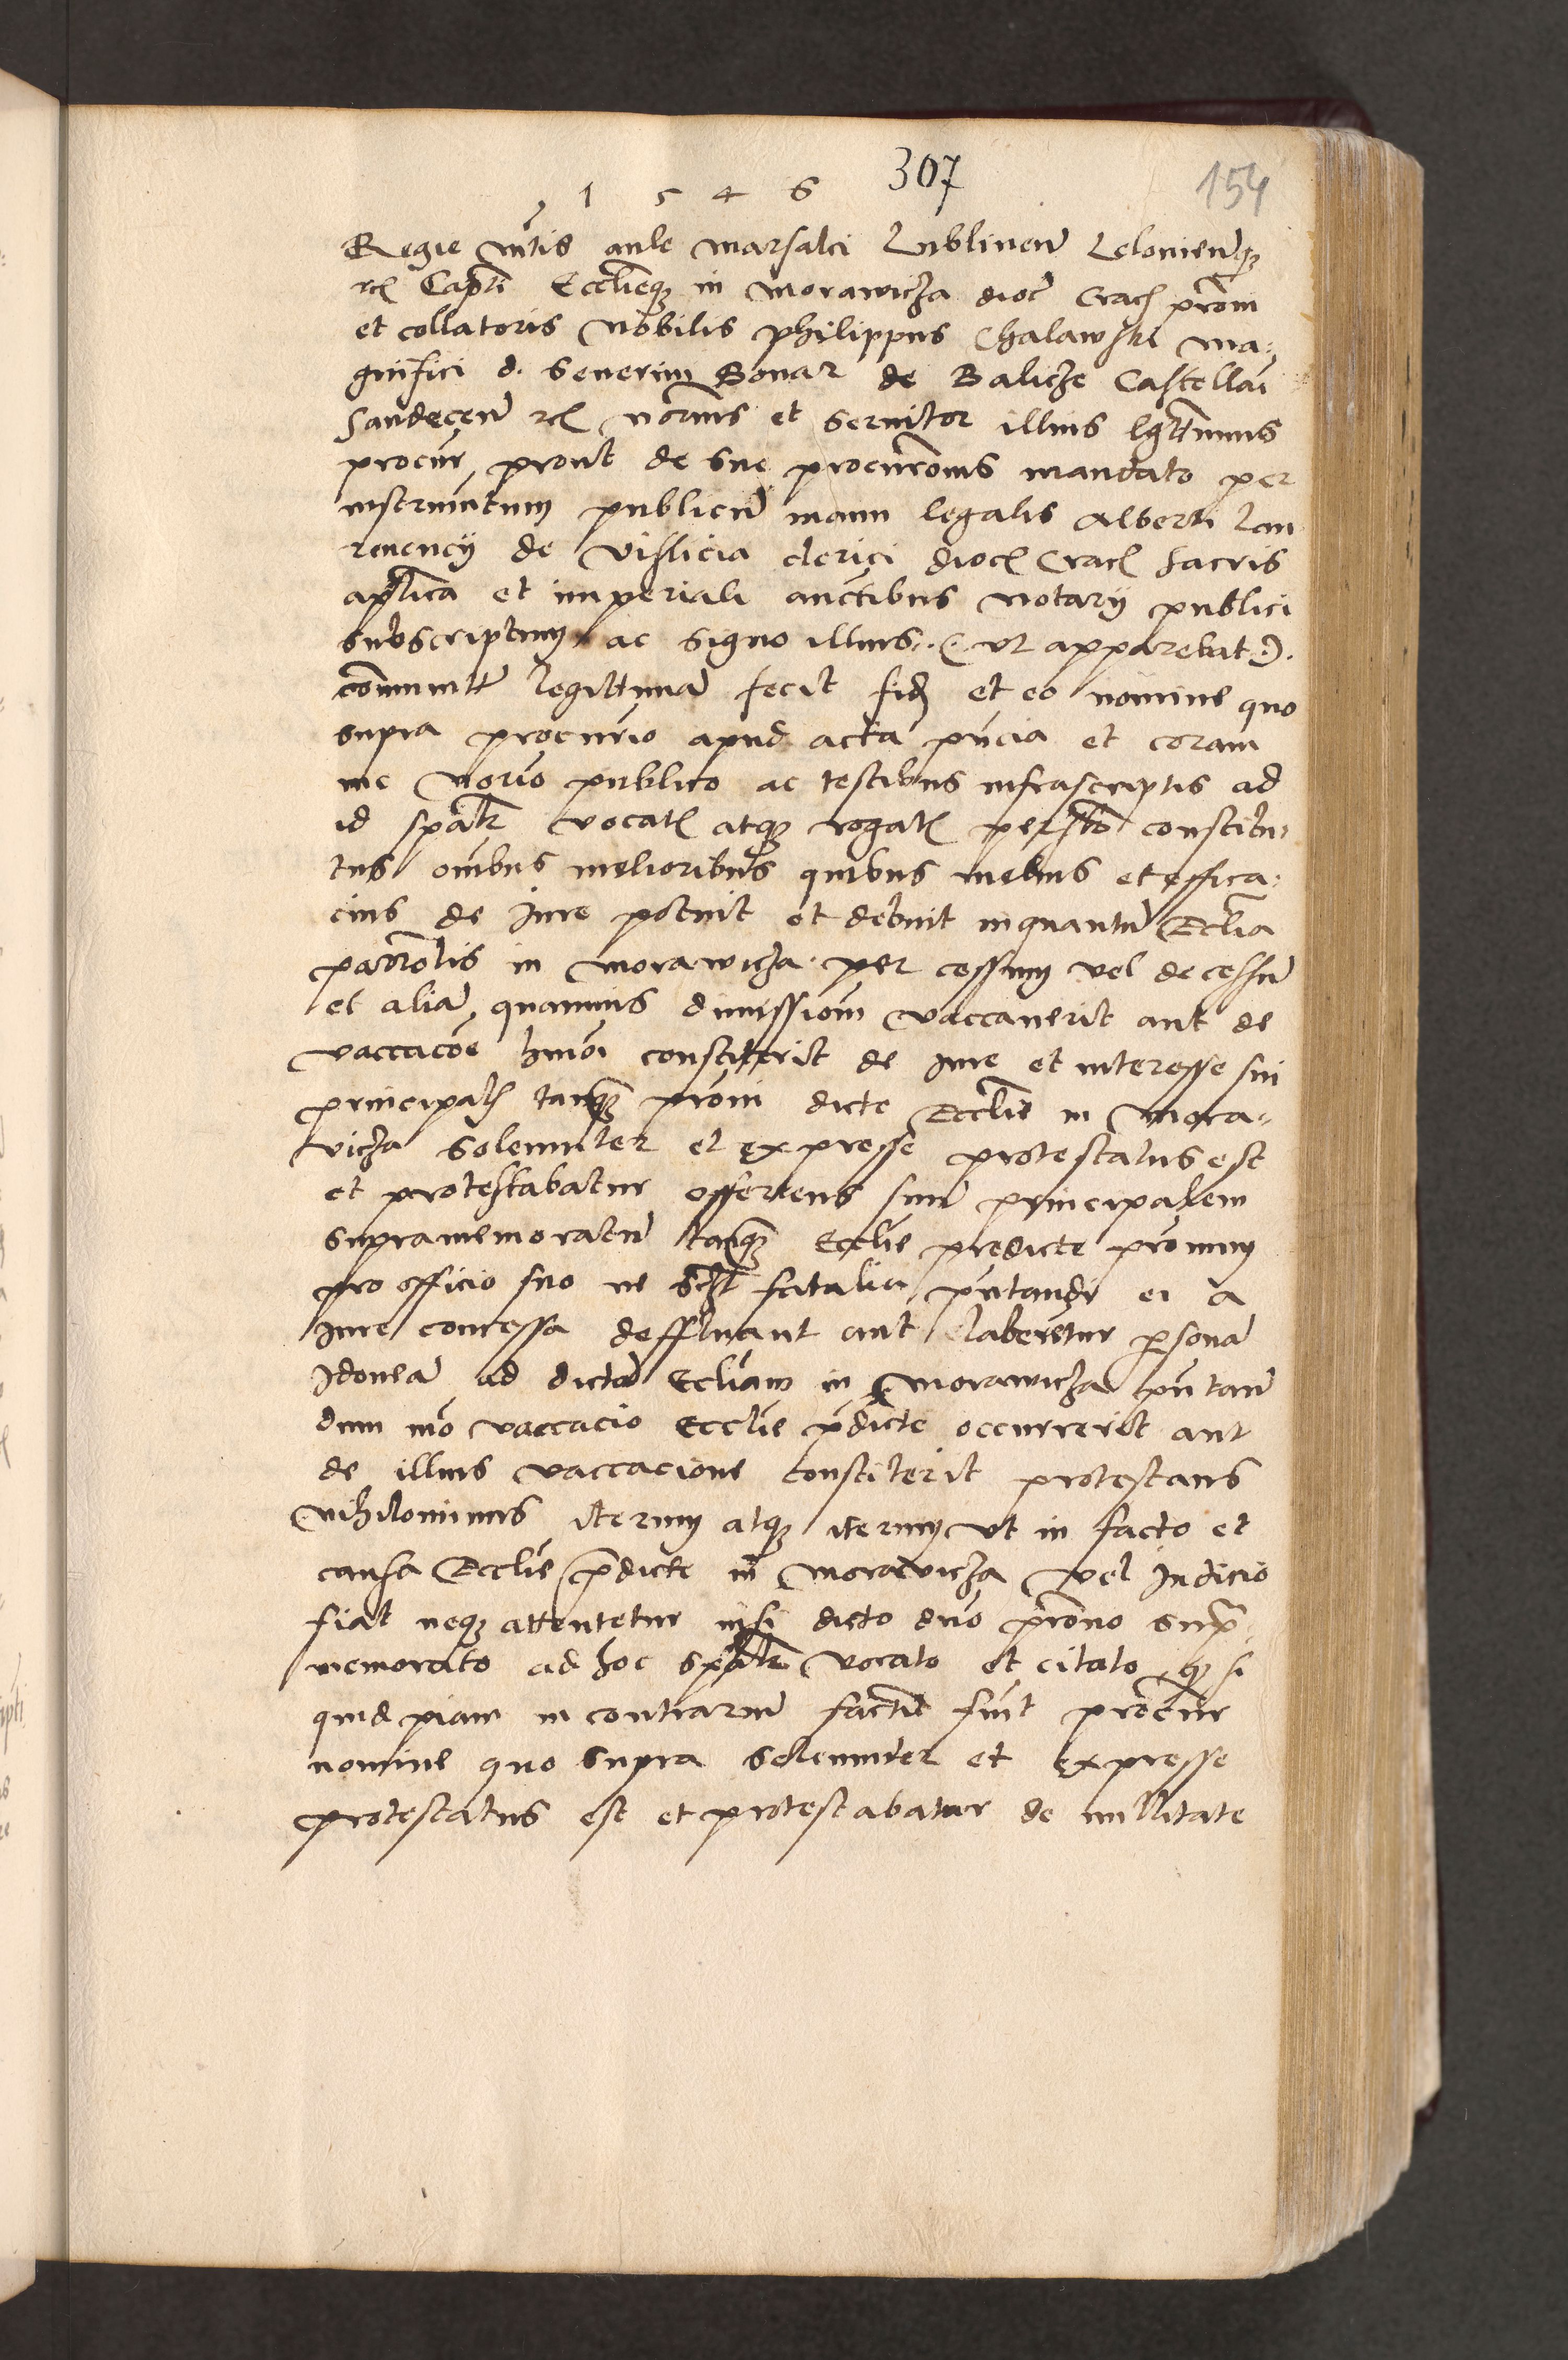 1546 307 154
Regie mtis aule marsalci Lublinen Lelovienq
rc Capti Ecclieq in Morawicza dioc Crac proni
et collatoris Nobilis philippus Chalawski ma=
gnifici d. Severini Bonar de Balicze Castellani
Sandecen rc norius et servitor illius lgttimus
procur prout de sue procuronis mandato per
instrumtum publicu manu legalis Alberti Lau
rencij de Vislicia clerici dioc Crac sacris
aplica et imperiali auctibus notarij publici
subscriptum ac signo illius (ut apparebat:).
communit legittima fecit fid et eo nomine quo
supra procurio apud acta pncia et coram
me norio publico ac testibus infrascriptis ad
id spalr vocat atq rogat constitu=
tus oibus melioribus quibus melius et effica=
cius de iure potuit et debuit inquantu Ecclia
parrolis in Morawicza per cessum vel decessu
et alia quamvis dimissiom vaccaverit aut de
vaccacoe hmoi constiterit de iure et interesse sui
principalis tanq proni dicte Ecclie in Mora=
vicza solemniter et expresse protestatus est
et protestabatur offerens suu principalem
supramemoratu tanq Ecclie predicte pronum
pro officio suo ne fatalia pntandi ei a
iure concessa deffluant aut elaberetur psona
Idonea ad dicta Ecliam in Morawicza pntan
dum mo vaccacio Ecclie pdicte occurrerit aut
de illius vaccacione constiterit protestans
nihilominus iterum atq iterum ut in facto et
causa Ecclie pdicte in Morawicza vel Indicio
fiat neq attentetur nisi dicto dno prono supra
memorato ad hoc spalr vocato et citato q si
quid piam in contrariu factu fuit procur
nomine quo supra solemniter et expresse
protestatus est et protestabatur de nullitate